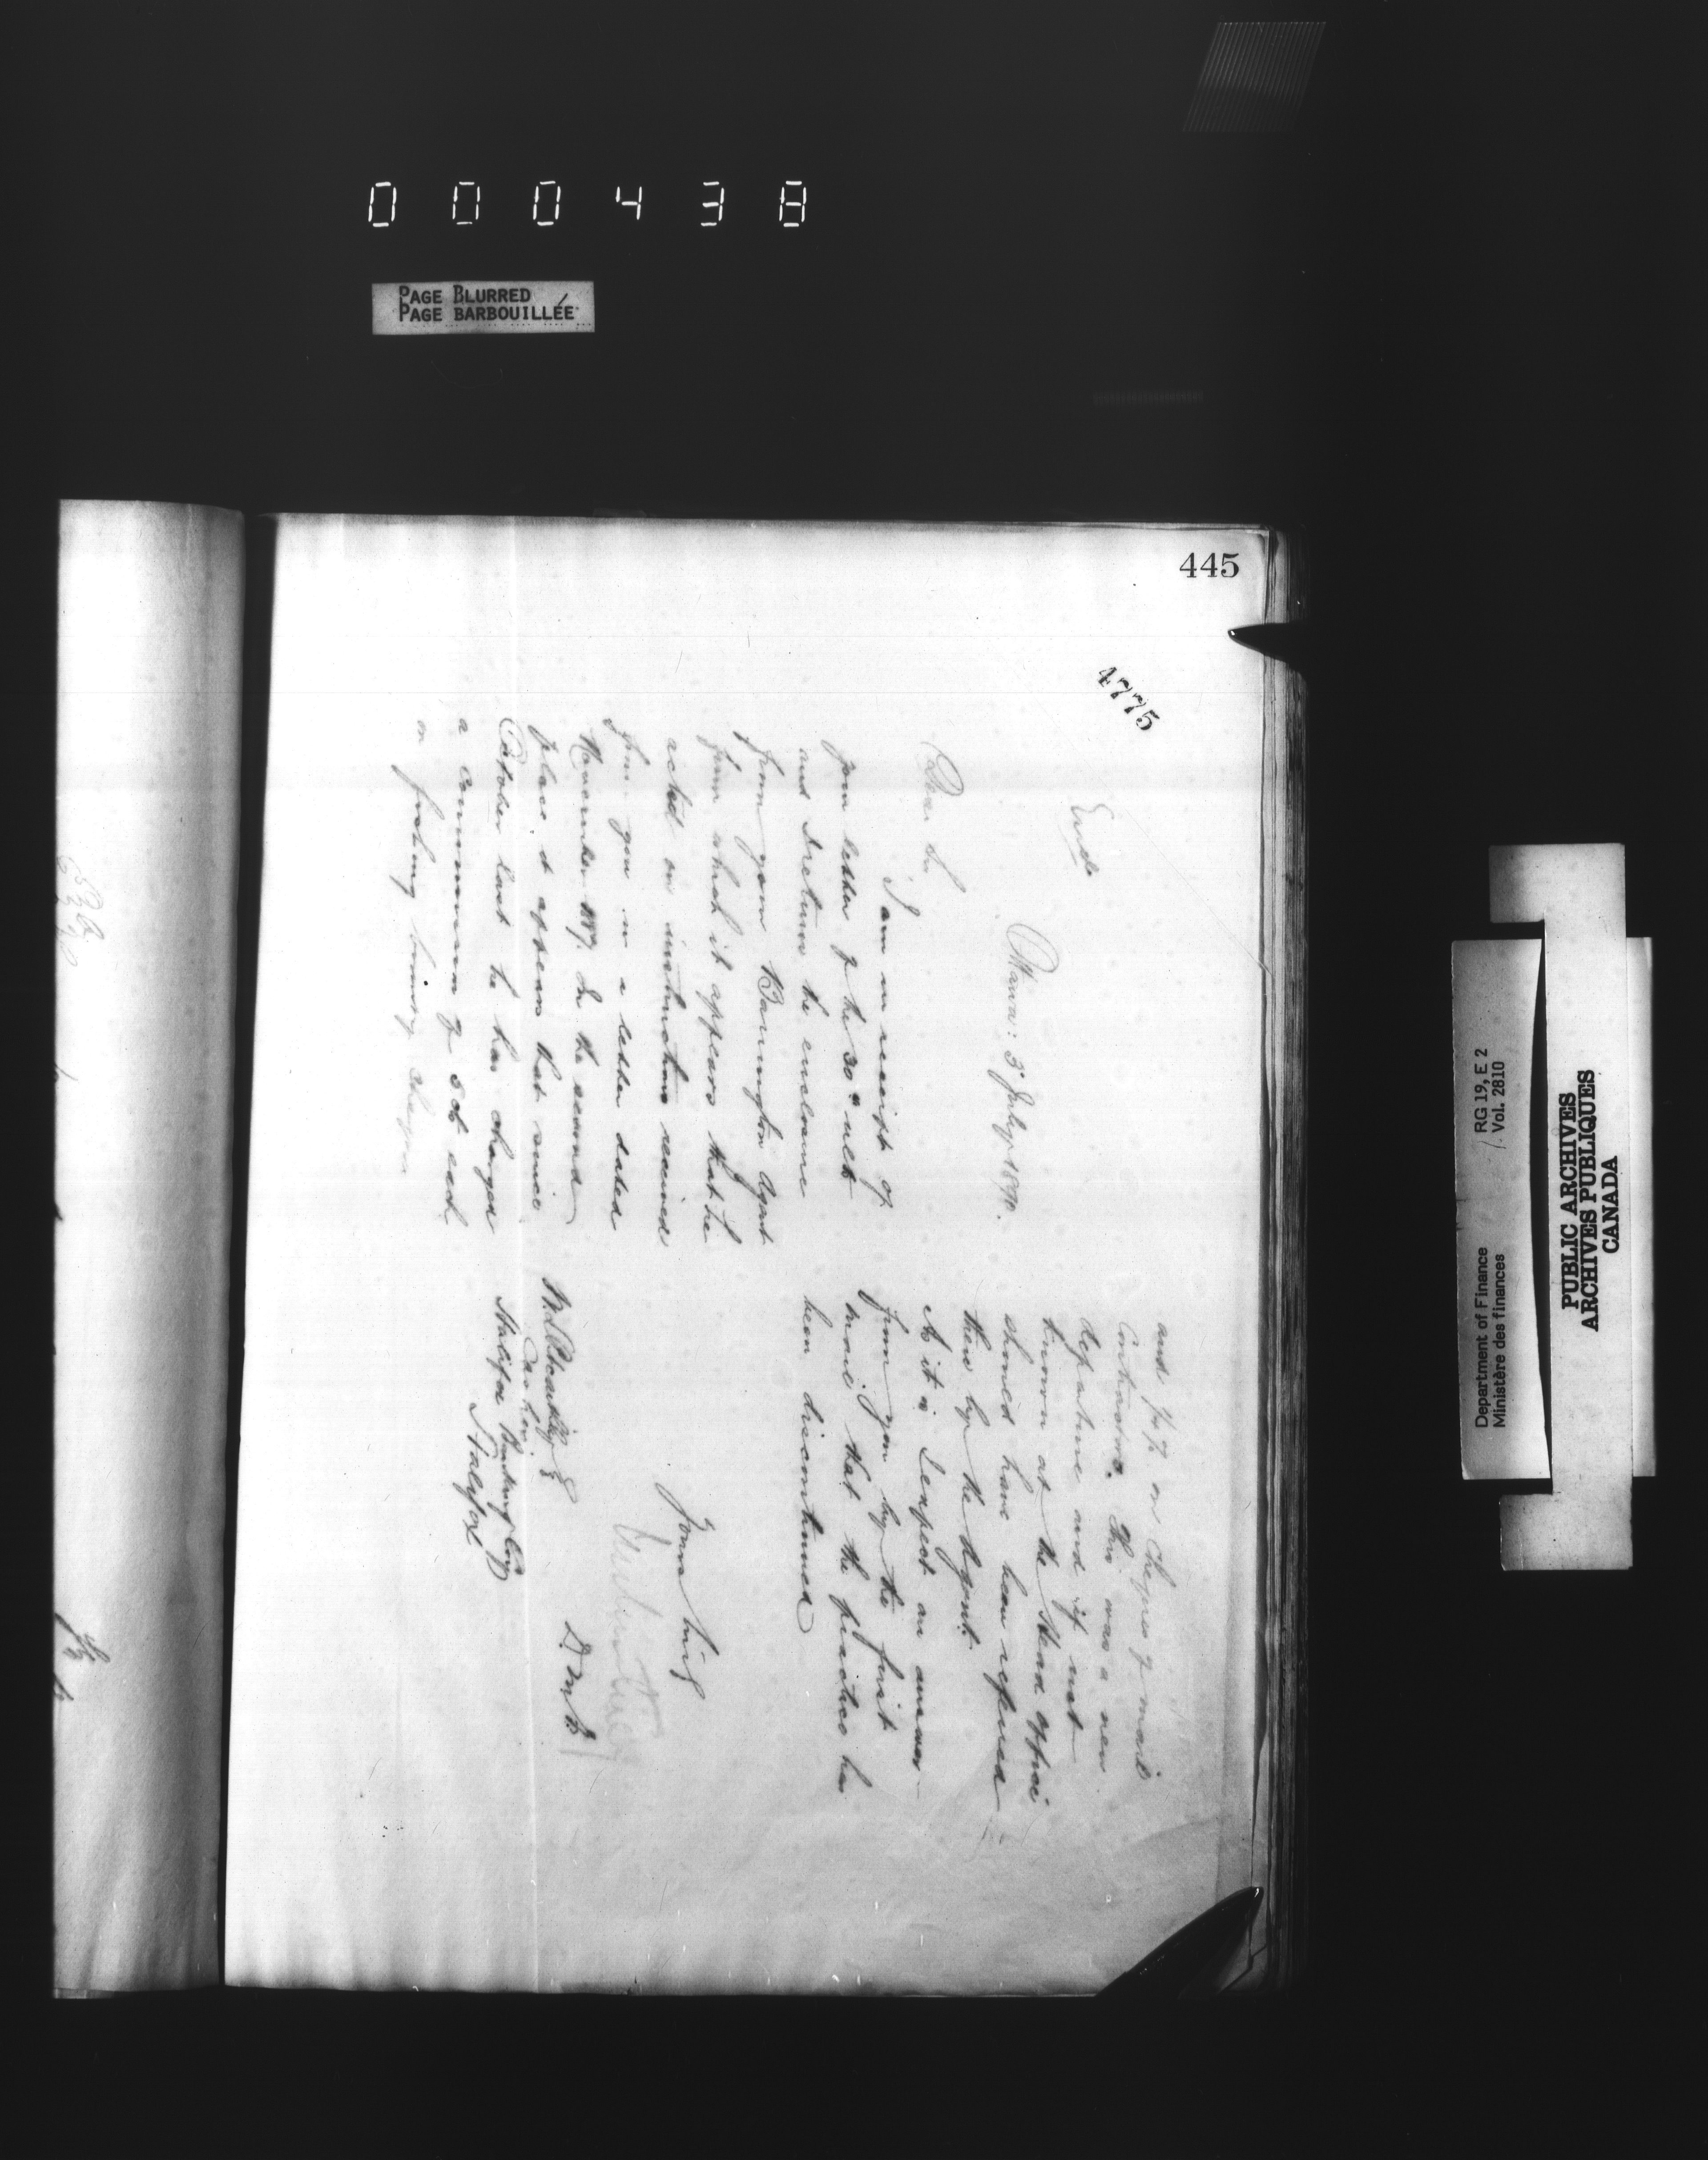 000438
PAGE BLURRED
PAGE BARBOUILLÉE
445
4775
Encl
Ottawa: 3 July 1890.
Dear Sir,
I am in receipt of
your letter of the 30th ult
and return the enclosure
from your Barrington Agent
from which it appears that he
acted on instructions received
from you in a letter dated
November 1887. In the second
place it appears that since
October last he has charged
a commission of 50c each
on fishing bounty cheques
and on cheques of mail
contractors. This was a new
departure and if not
known at the Head office
should have been refused
there by the Agent.
As it is I expect an answer
from you by the first
mail that the practice has
been discontinued
Yours truly
D.M.F.
Cashier
Halifax Banking Coy
Halifax
RG 19, E 2
Vol. 2810
Department of Finance
Ministère des finances
PUBLIC ARCHIVES
ARCHIVES PUBLIQUES
CANADA